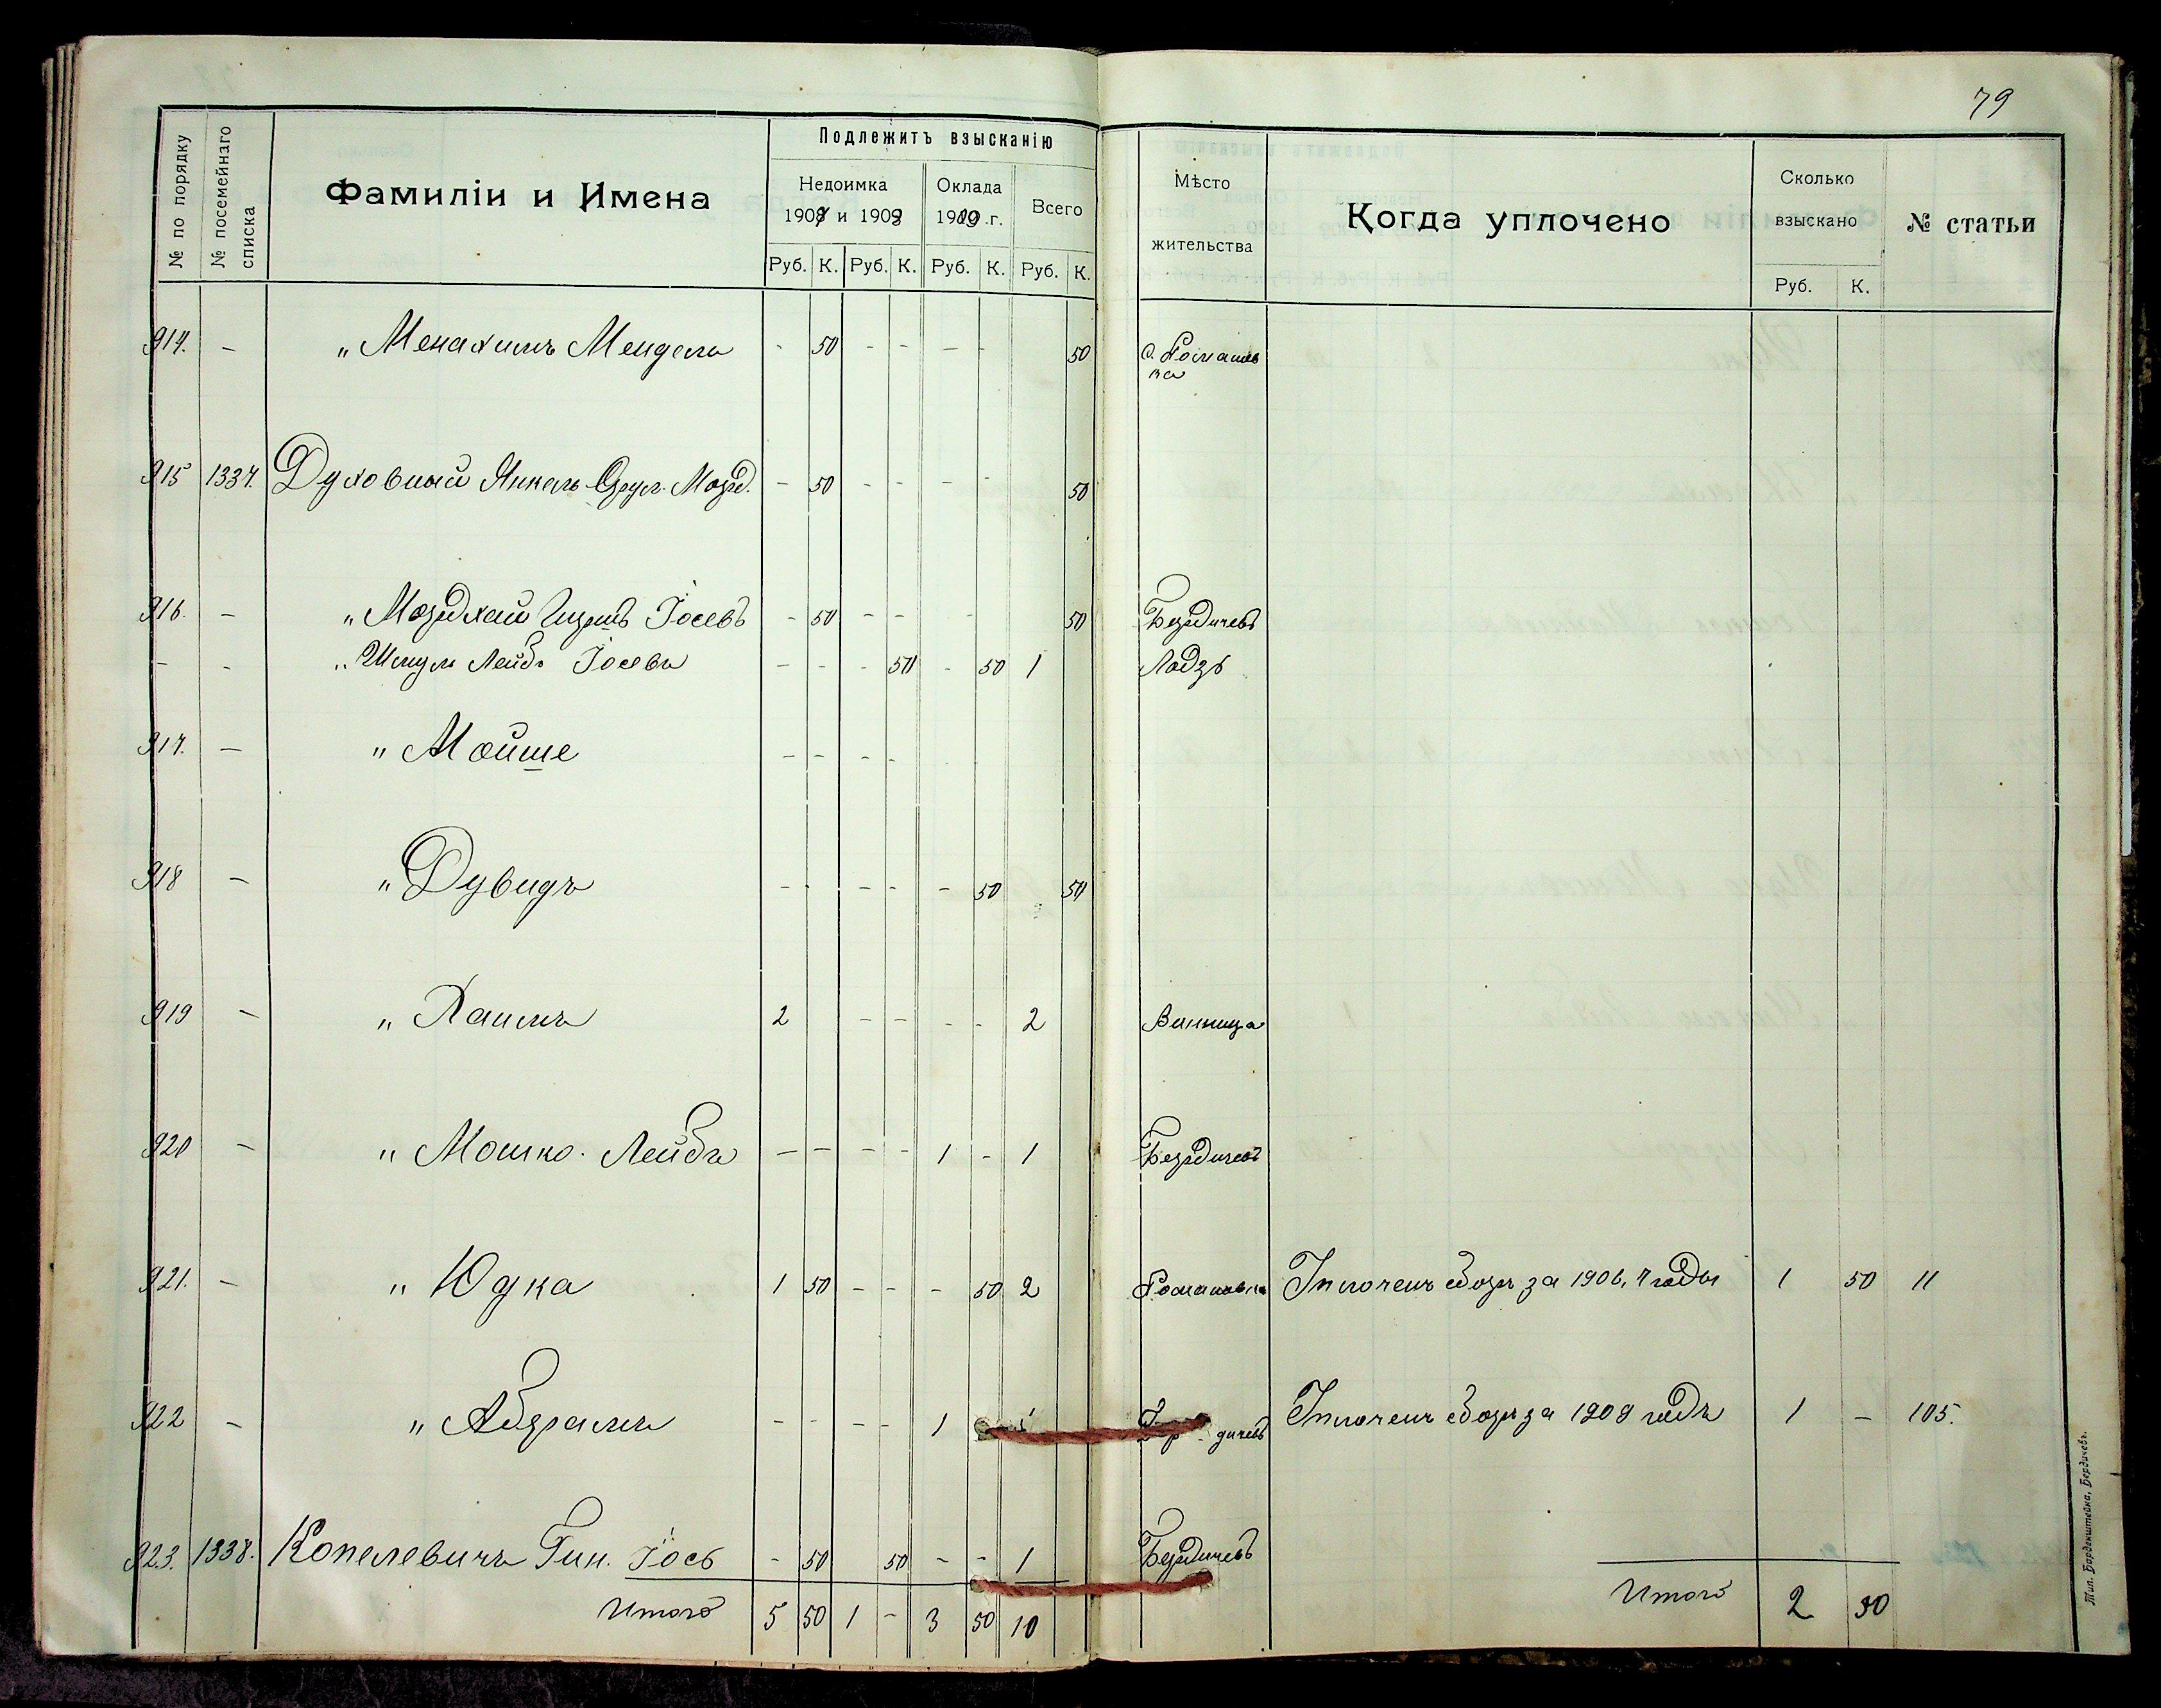 79
№ по порядку
№ посемейнаго списка
Фамиліи и Имена
Подлежитъ взысканію
Недоимка
1908 и 1909
Оклада
1909 г.
Всего
Руб. К. Руб. К. Руб. К. Руб. К.
Мѣсто
жительства
Когда уплочено
Сколько
взыскано
Руб. К.
№ статьи
914. - „ Менахимъ Мендель - 50 - - - - 50 с. Романов
ка
915 1337. Духовный Янкель Срул.Морд. - 50 - - - - 50
916. - „ Мордхай Гершъ Іосевъ - 50 - - - 50 Бердичевъ
- - „ Шмуль Лейбъ Іосевъ - - - 50 - 50 1 Лодзь
917. - „ Мойше - - - -
918 - „ Дувидъ - - - - - 50 50
919 - „ Хаимъ 2 - - - - 2 Винница
920 - „ Мошко-Лейбъ - - - - 1 - 1 Бердичевъ
921. - „ Юдка 1 50 - - - 50 2 Романовка Уплоченъ сборъ за 1906, 7 годы 1 50 11
922 - „ Абрамъ - - - - 1 1 дичевъ Уплоченъ сборъ за 1909 годъ 1 - 105.
923. 1338. Копелевичъ Гин. Іось - 50 50 - - 1 Бердичевъ
Итого 5 50 1 - 3 50 10
Итого 2 50
Тип. Барденштейна, Бердичевъ.